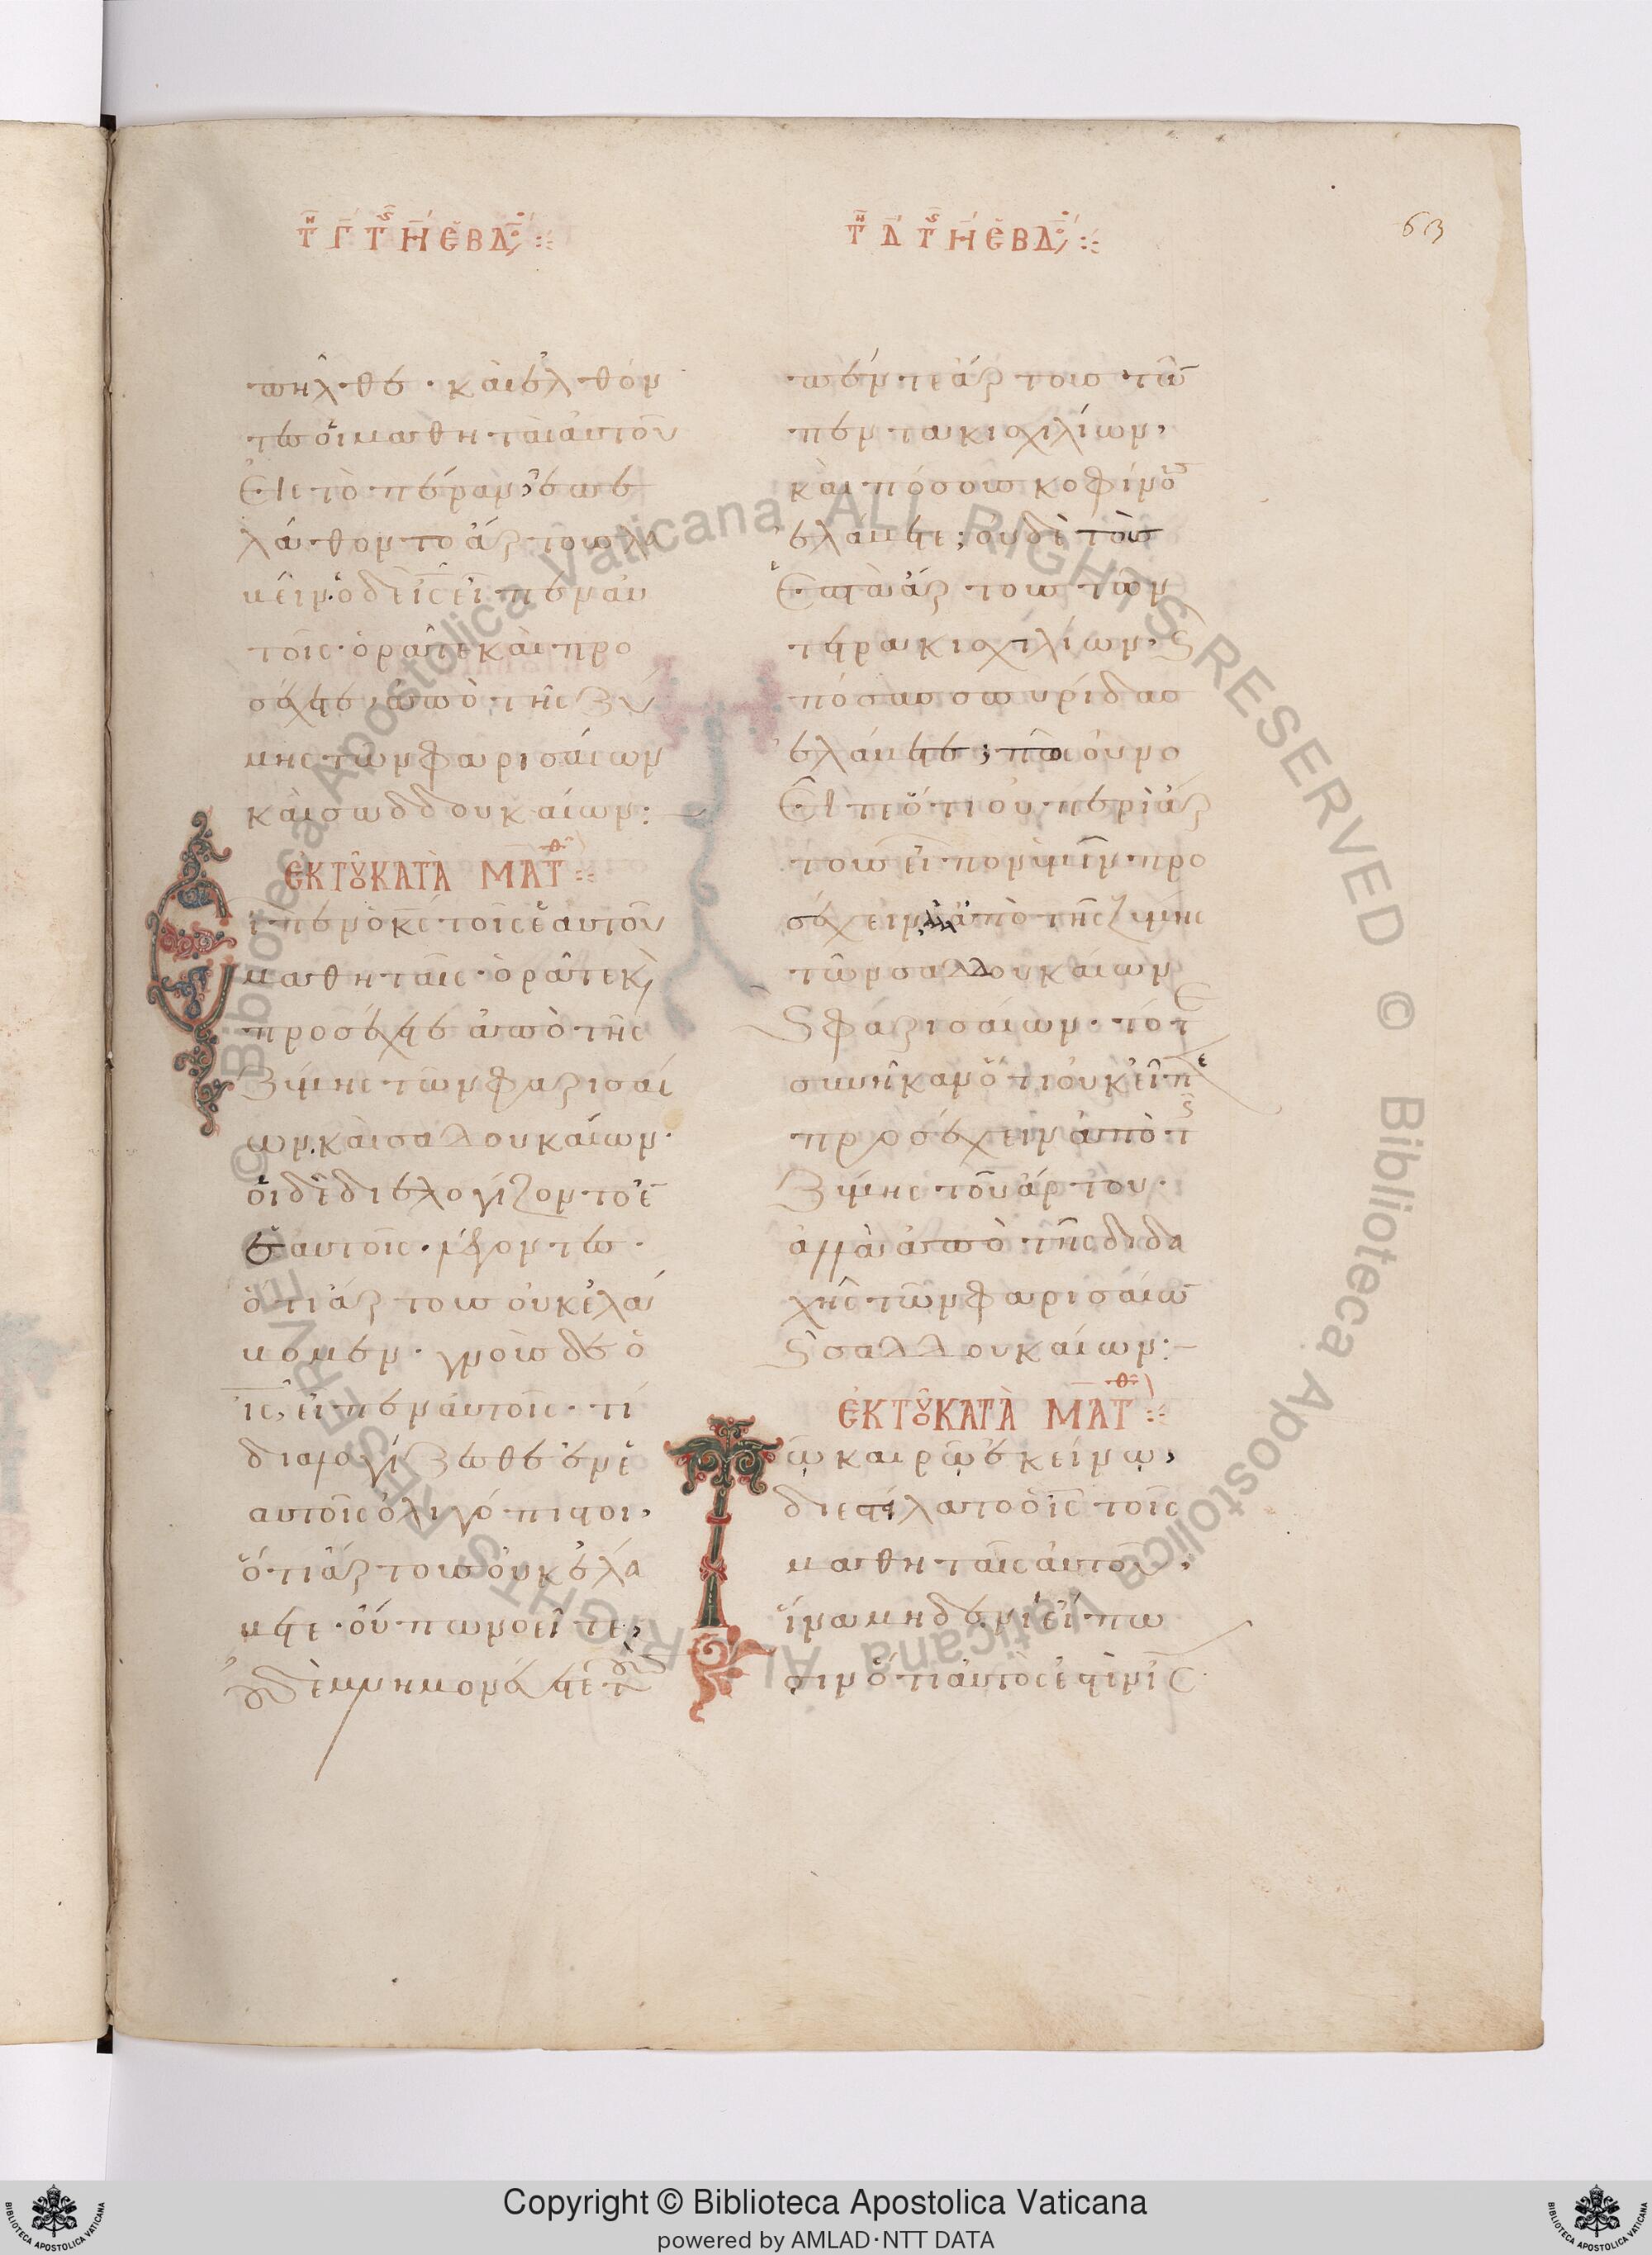 τῇ Γ τῆς Η ἑβδ
πῆλθε· καὶ ἐλθόν
τες οἱ μαθηταὶ αὐτοῦ
εἰς τὸ πέραν, ἐπε
λάθοντο ἄρτους λα
βεῖν· ὁ δὲ ις εἶπεν αὐ
τοῖς· ὁρᾶτε καὶ προ
σέχετε ἀπὸ τῆς ζύ
μης τῶν φαρισαίων
καὶ σαδδουκαίων:
ἐκ τοῦ κατὰ Ματθ
ἶπεν ὁ κς τοῖς ἑαυτοῦ
μαθηταῖς· ὁρᾶτε κ
προσέχετε ἀπὸ τῆς
ζύμης τῶν φαρισαί
ων καὶ σαδδουκαίων·
οἱ δὲ διελογίζοντο ἐ
ἑαυτοῖς· λέγοντες·
ὅτι ἄρτους οὐκ ἐλά
βομεν· γνοὺς δὲ ὁ
ις, εἶπεν αὐτοῖς· τί
διαλογίζεσθε ἐν ἑ
αυτοῖς ὀλιγόπιστοι,
ὅτι ἄρτους οὐκ ἐλά
βετε· οὔπω νοεῖτε,
οὐδὲ μνημονεύετε τοὺς
τῇ Δ τῆς Η ἑβδ
πέντε ἄρτους τῶ
πεντακισχιλίων,
καὶ πόσους κοφίνους
ἐλάβετε; οὐδὲ τοὺς
ἑπτὰ ἄρτους τῶν
τετρακισχιλίων, ϗ
πόσας σπυρίδας
ἐλάβετε; πῶς οὐ νο
εῖτε ὅτι οὐ περὶ ἄρ
του εἶπον ὑμῖν προ
σέχειν ἀπὸ τῆς ζύμης
τῶν σαδδουκαίων
ϗ φαρισαίων· τότε
συνῆκαν ὅτι οὐκ εἶπε
προσέχειν ἀπὸ τῆς
ζύμης τοῦ ἄρτου·
ἀλλὰ ἀπὸ τῆς διδα
χῆς τῶν φαρισαίω
ϗ σαδδουκαίων:
ἐκ τοῦ κατὰ Ματθ
Τῷ καιρῷ ἐκείνῳ,
διεστείλατο ὁ ις τοῖς
μαθηταῖς αὐτοῦ,
ἵνα μηδενὶ εἴπω
σιν ὅτι αὐτός ἐστιν ις
63
© Biblioteca Apostolica Vaticana ALL RIGHTS RESERVED © Biblioteca Apostolica Vaticana ALL RIGHTS RESERVED
Copyright © Biblioteca Apostolica Vaticana
powered by AMLAD·NTT DATA
BIBLIOTECA APOSTOLICA VATICANA
BIBLIOTECA APOSTOLICA VATICANA